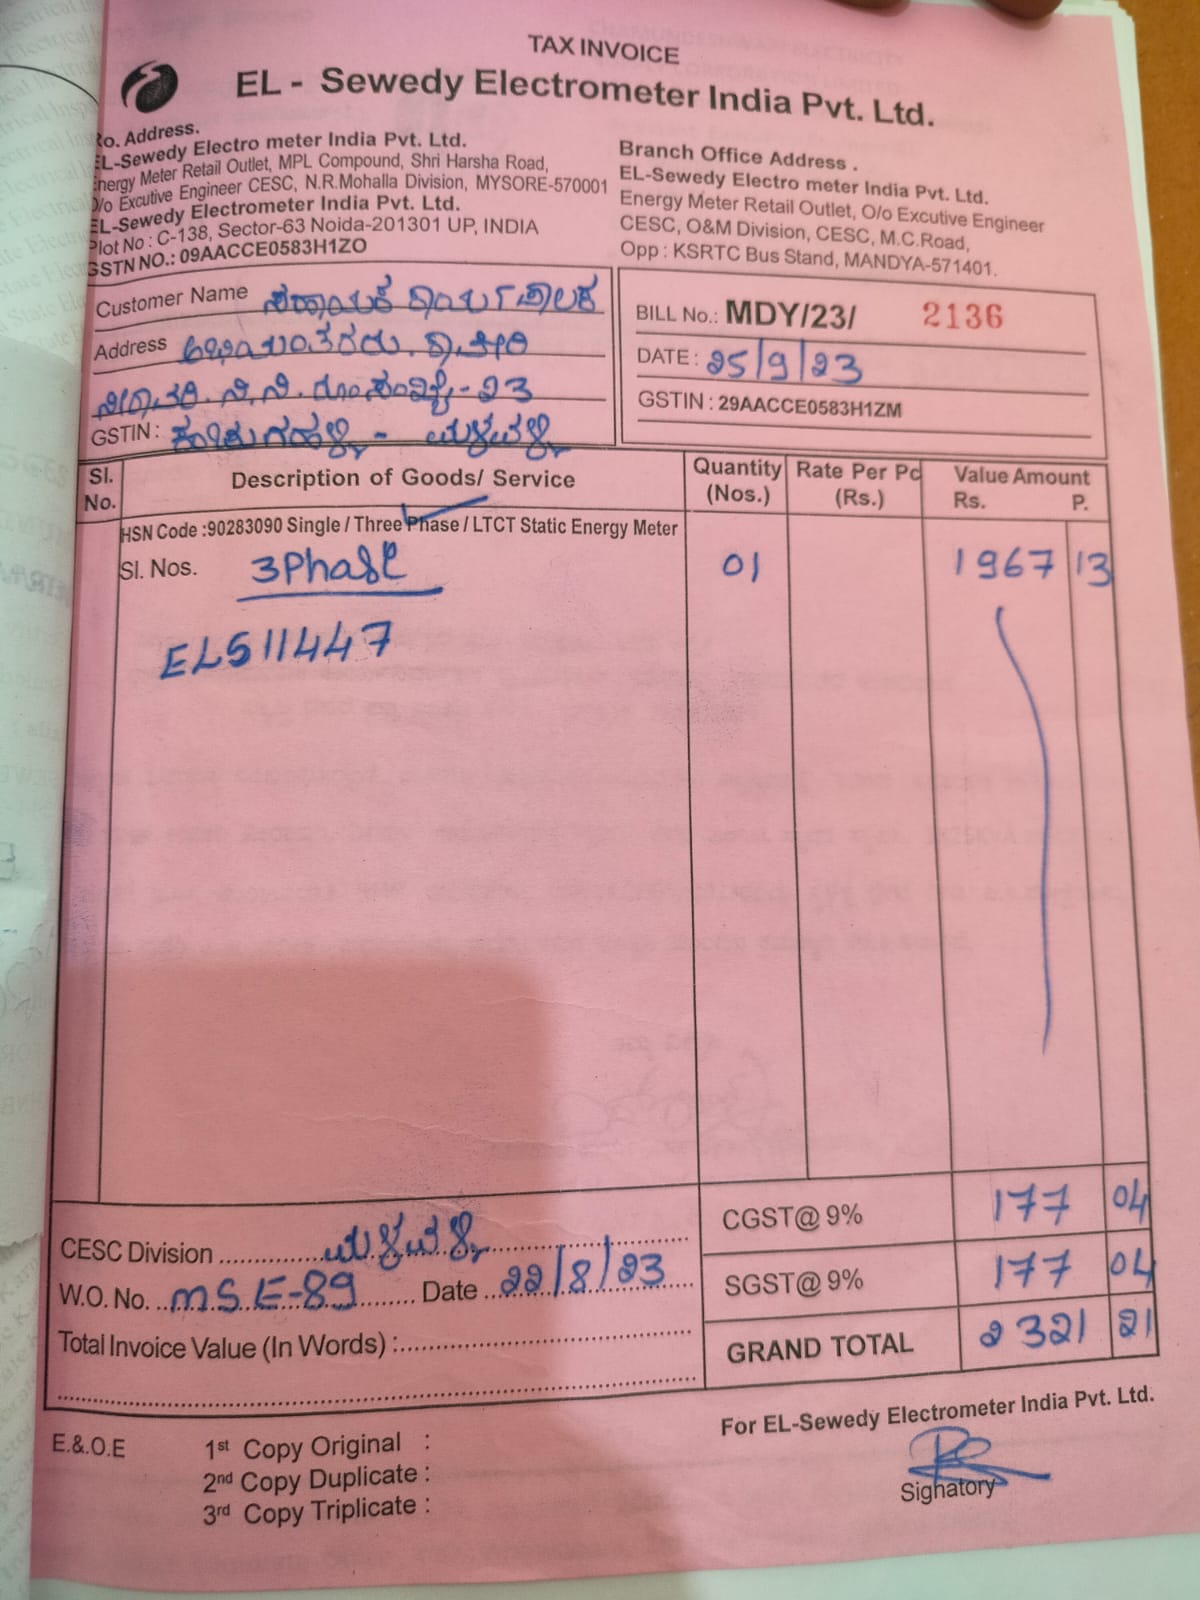 TAX INVOICE
EL - Sewedy Electrometer India Pvt. Ltd.
Ro. Address.
EL-Sewedy Electro meter India Pvt. Ltd.
Energy Meter Retail Outlet, MPL Compound, Shri Harsha Road,
O/o Excutive Engineer CESC, N.R.Mohalla Division, MYSORE-570001
EL-Sewedy Electrometer India Pvt. Ltd.
Plot No : C-138, Sector-63 Noida-201301 UP, INDIA
GSTN NO.: 09AACCE0583H1ZO
Branch Office Address .
EL-Sewedy Electro meter India Pvt. Ltd.
Energy Meter Retail Outlet, O/o Excutive Engineer
CESC, O&M Division, CESC, M.C.Road,
Opp : KSRTC Bus Stand, MANDYA-571401.
Customer Name
Address
GSTIN :
BILL No.: MDY/23/ 2136
DATE : 25/9/23
GSTIN : 29AACCE0583H1ZM
Sl. No. Description of Goods/ Service Quantity (Nos.) Rate Per Pc (Rs.) Value Amount Rs. P.
HSN Code :90283090 Single / Three Phase / LTCT Static Energy Meter
Sl. Nos. 3Phase 01 1967 13
ELS11447
CGST@ 9% 177 04
CESC Division
SGST@ 9% 177 04
W.O. No. MSE-89 Date 22/8/23
GRAND TOTAL 2321 21
Total Invoice Value (In Words) :
For EL-Sewedy Electrometer India Pvt. Ltd.
Sighatory
E.&.O.E 1st Copy Original :
2nd Copy Duplicate :
3rd Copy Triplicate :